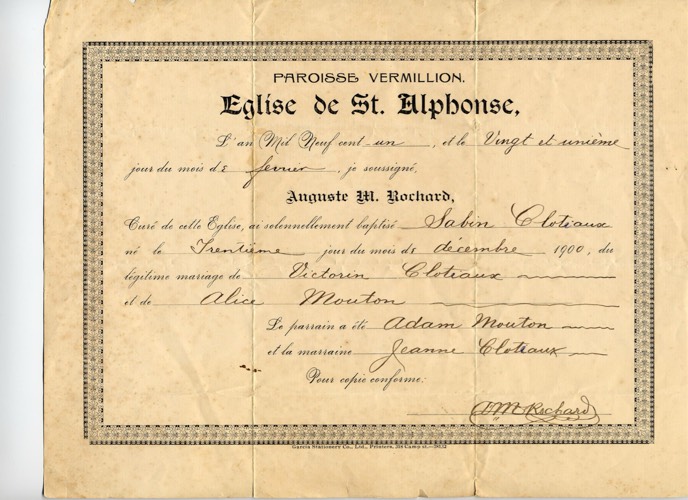 PAROISSE VERMILLION.
Eglise de St. Alphonse,
L'an Mil Neuf cent un, et le Vingt et unième
jour du mois de fevrier, je soussigné,
Auguste M. Rochard,
Curé de cette Eglise, ai solennellement baptisé Sabin Clotiaux
né le Trentième jour du mois de décembre 1900, du
légitime mariage de Victorin Clotiaux
et de Alice Mouton
Le parrain a été Adam Mouton
et la marraine Jeanne Clotiaux
Pour copie conforme:
AM Rochard
Garcia Stationery Co., Ltd., Printers, Camp st.